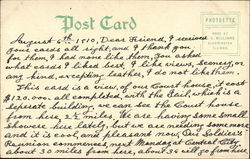 Post Card
PHOTOETTE
MADE BY
S. WILLIAMS
BLOOMINGTON
ILLINOIS
August 6th 1910, Dear Friend, I received
your cards all right, and I thank you
for them, & had more like them, you asked
what cards I liked best, I like views, scenery, or
any kind, excepting leather, I do not like them.
This card is a view, of our Court house, it cost
$120,000 all completed, with the Jail, which is a
separate building, we can see the Court house
from here 2½ miles. We are having some small
showers here lately, but we are needing some more
and it is cool and pleasant now, Old Soldier's
Reunion commences, next Monday at Central City
about 30 miles from here, about 36 will go from here